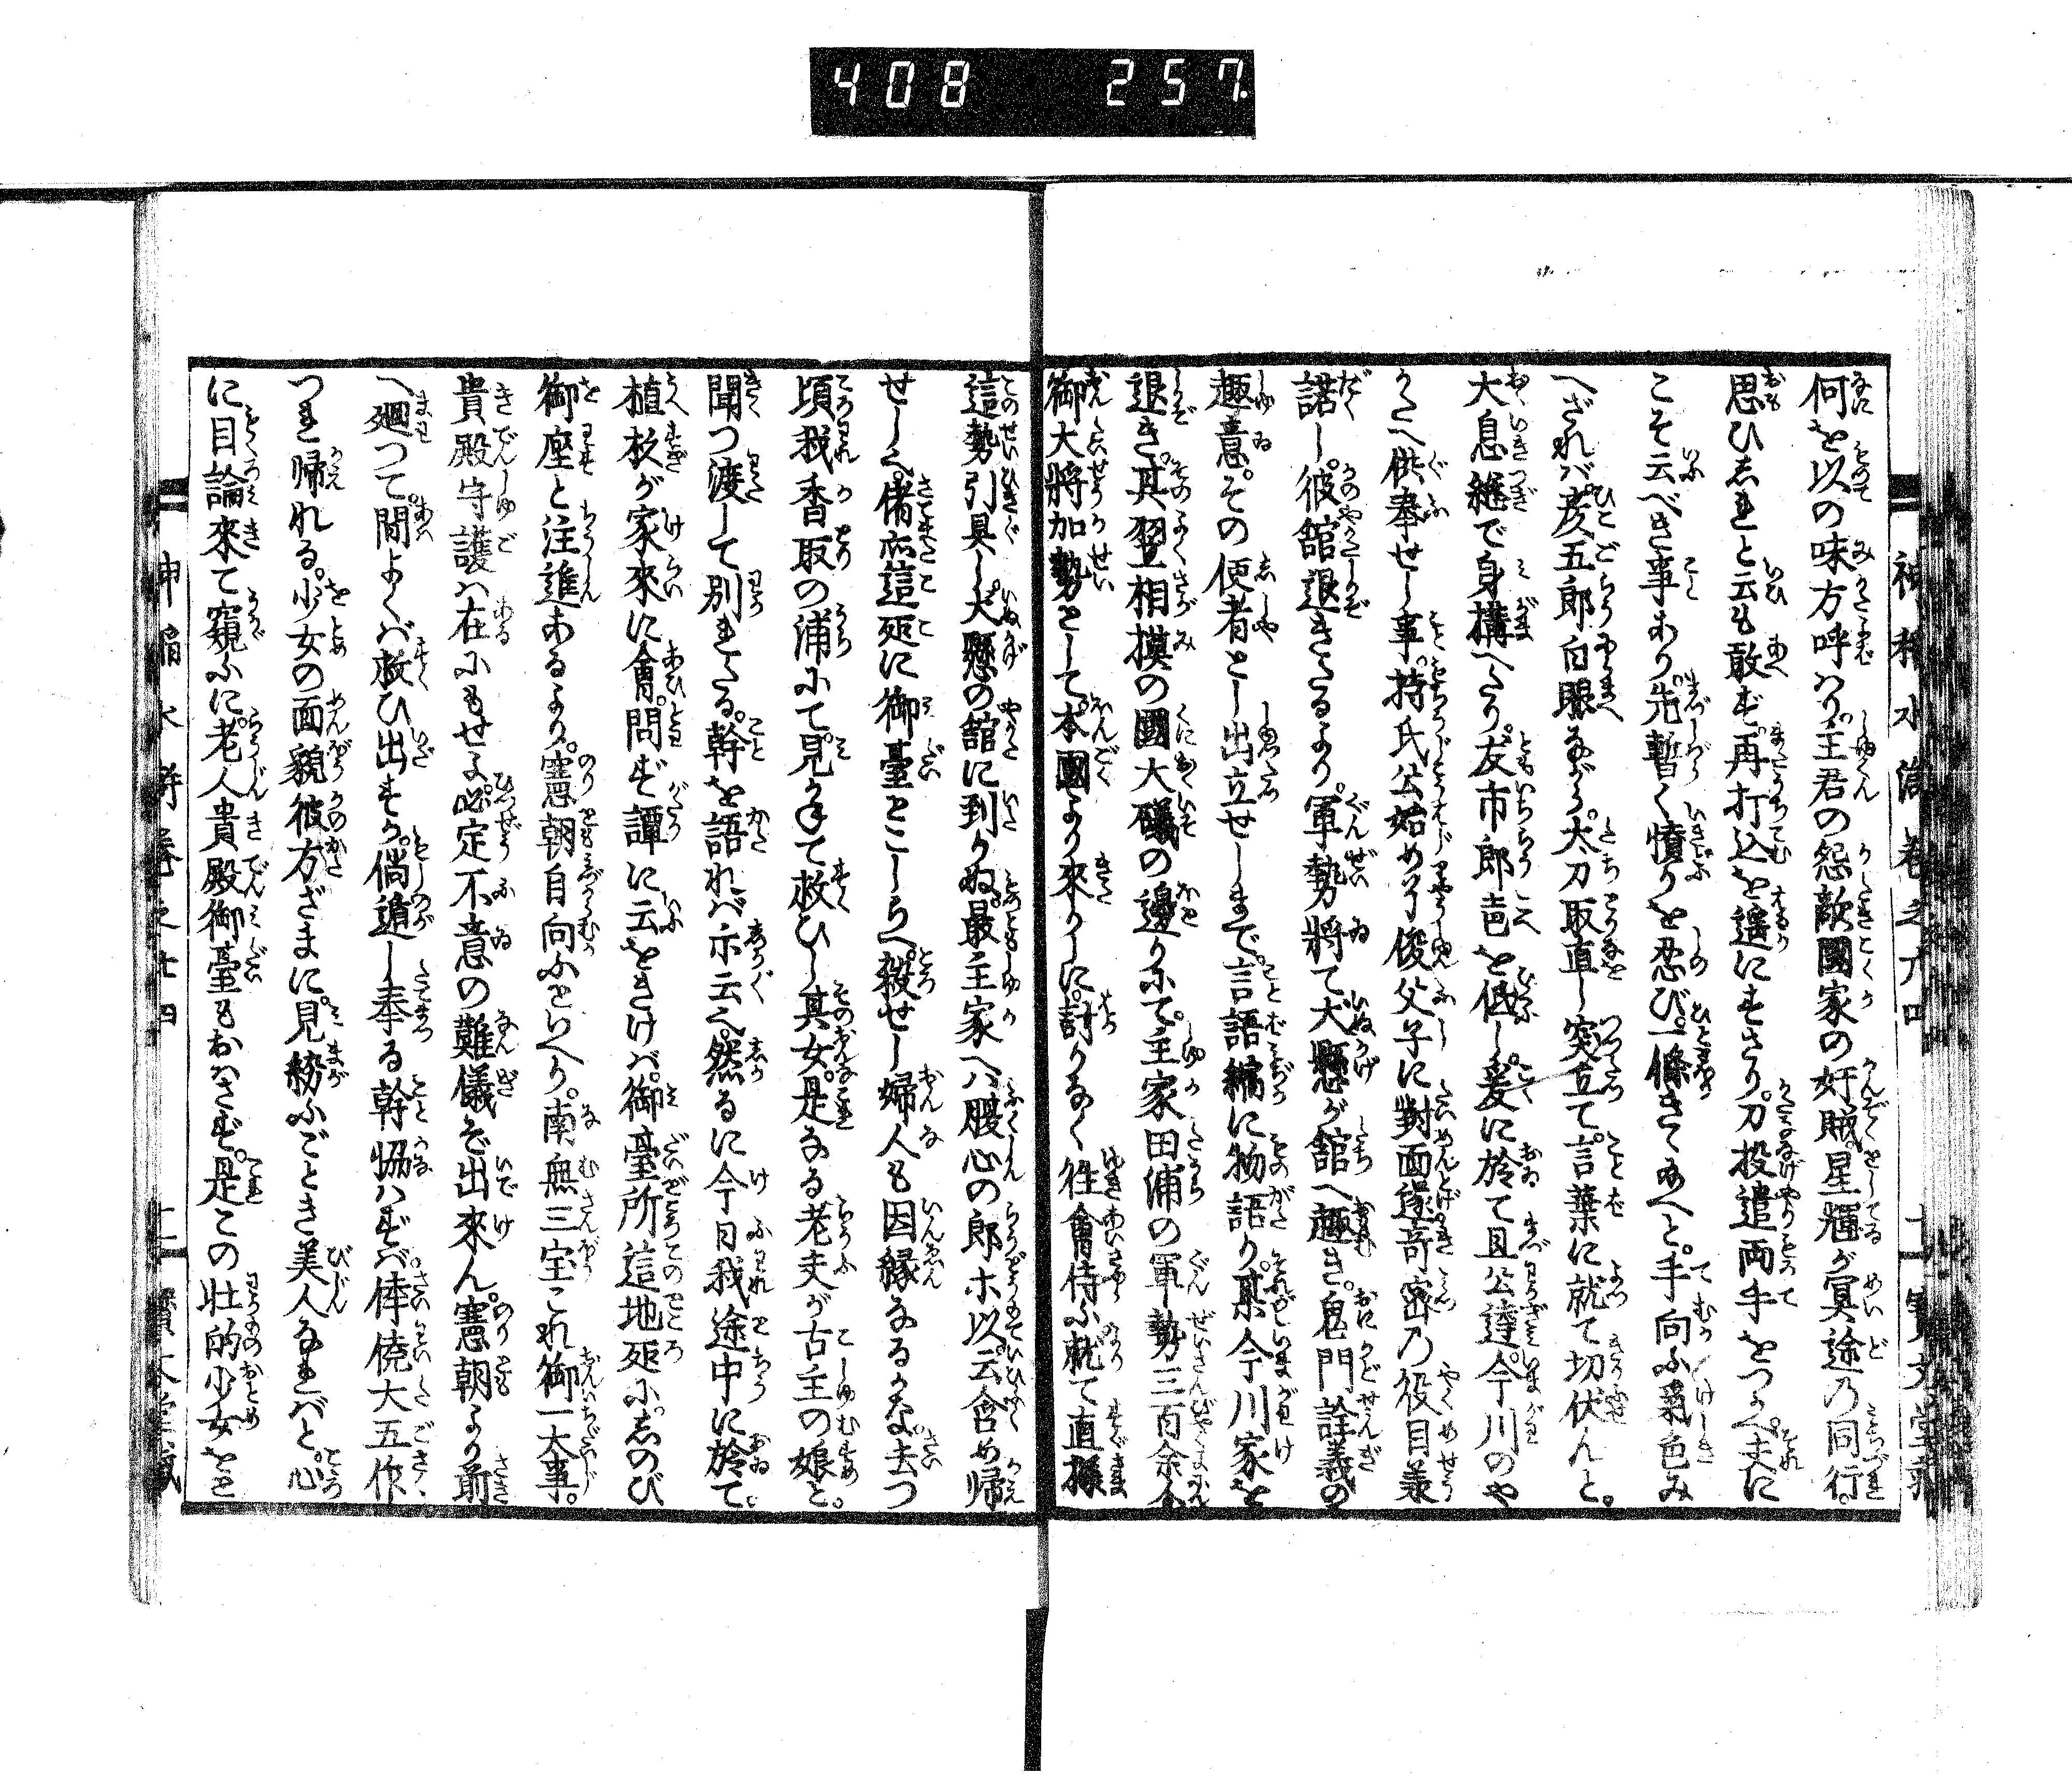 408 257
何を以の味方呼はり。王君の怨敵國家の奸賊。星輝が冥途の同行。
思ひしれと云も敢ず。再打込を遥にすさり。刀投遣両手をつかへ。夫に
こそ云べき事あり。先暫く憤りを忍び。一條きゝ給へと。手向ふ氣色み
へざれば。彦五郎白眼ながら。太刀取直し突立て。言葉に就て切伏んと。
大息継で身構へたり。友市郎声を低し。爰に於て且公達。今川のや
かたへ供奉せし事。持氏公始め了俊父子に對面遂。奇密の役目兼
諾し。彼舘退きたるより。軍勢將て犬懸が舘へ趣き。鬼門詮義の
趣意。その使者とし出立せしまで。言語縮に物語り。某今川家を
退き。其翌相摸の國大礒の邊りにて。主家田浦の軍勢三百余人
御大將加勢として。本國より來りしに。討りなく徃會侍ふ。就て直様
這勢引具し。犬懸の舘に到りぬ。最主家へハ腹心の郎ホ以。云含め帰
せしぐ。偖亦這死に御臺とこしらへ。殺せし婦人も因縁なるかな。去つ
頃我香取の浦にて。見かねて救ひし其女。是なる老夫が古主の娘と。
聞つ渡して別れたる。幹を語れバ尓云云。然るに今日我途中に於て。
植杉が家來に會。問ず譚に云をきけバ。御臺所這地死に。しのび
御座と注進あるより。憲朝自向ふといへり。南無三宝これ御一大事。
貴殿守護ハ在にもせよ。必定不意の難儀ぞ出來ん。憲朝より前
へ廻つて。間よくバ救ひ出すか。倘遁し奉る幹協ハずバ。倖僥大五作
つれ帰れる。少女の面貌彼方ざまに。見紛ふごとき美人なれバと。心
に目論來て窺ふに。老人貴殿御臺もおハさず。是この壮的少女をを